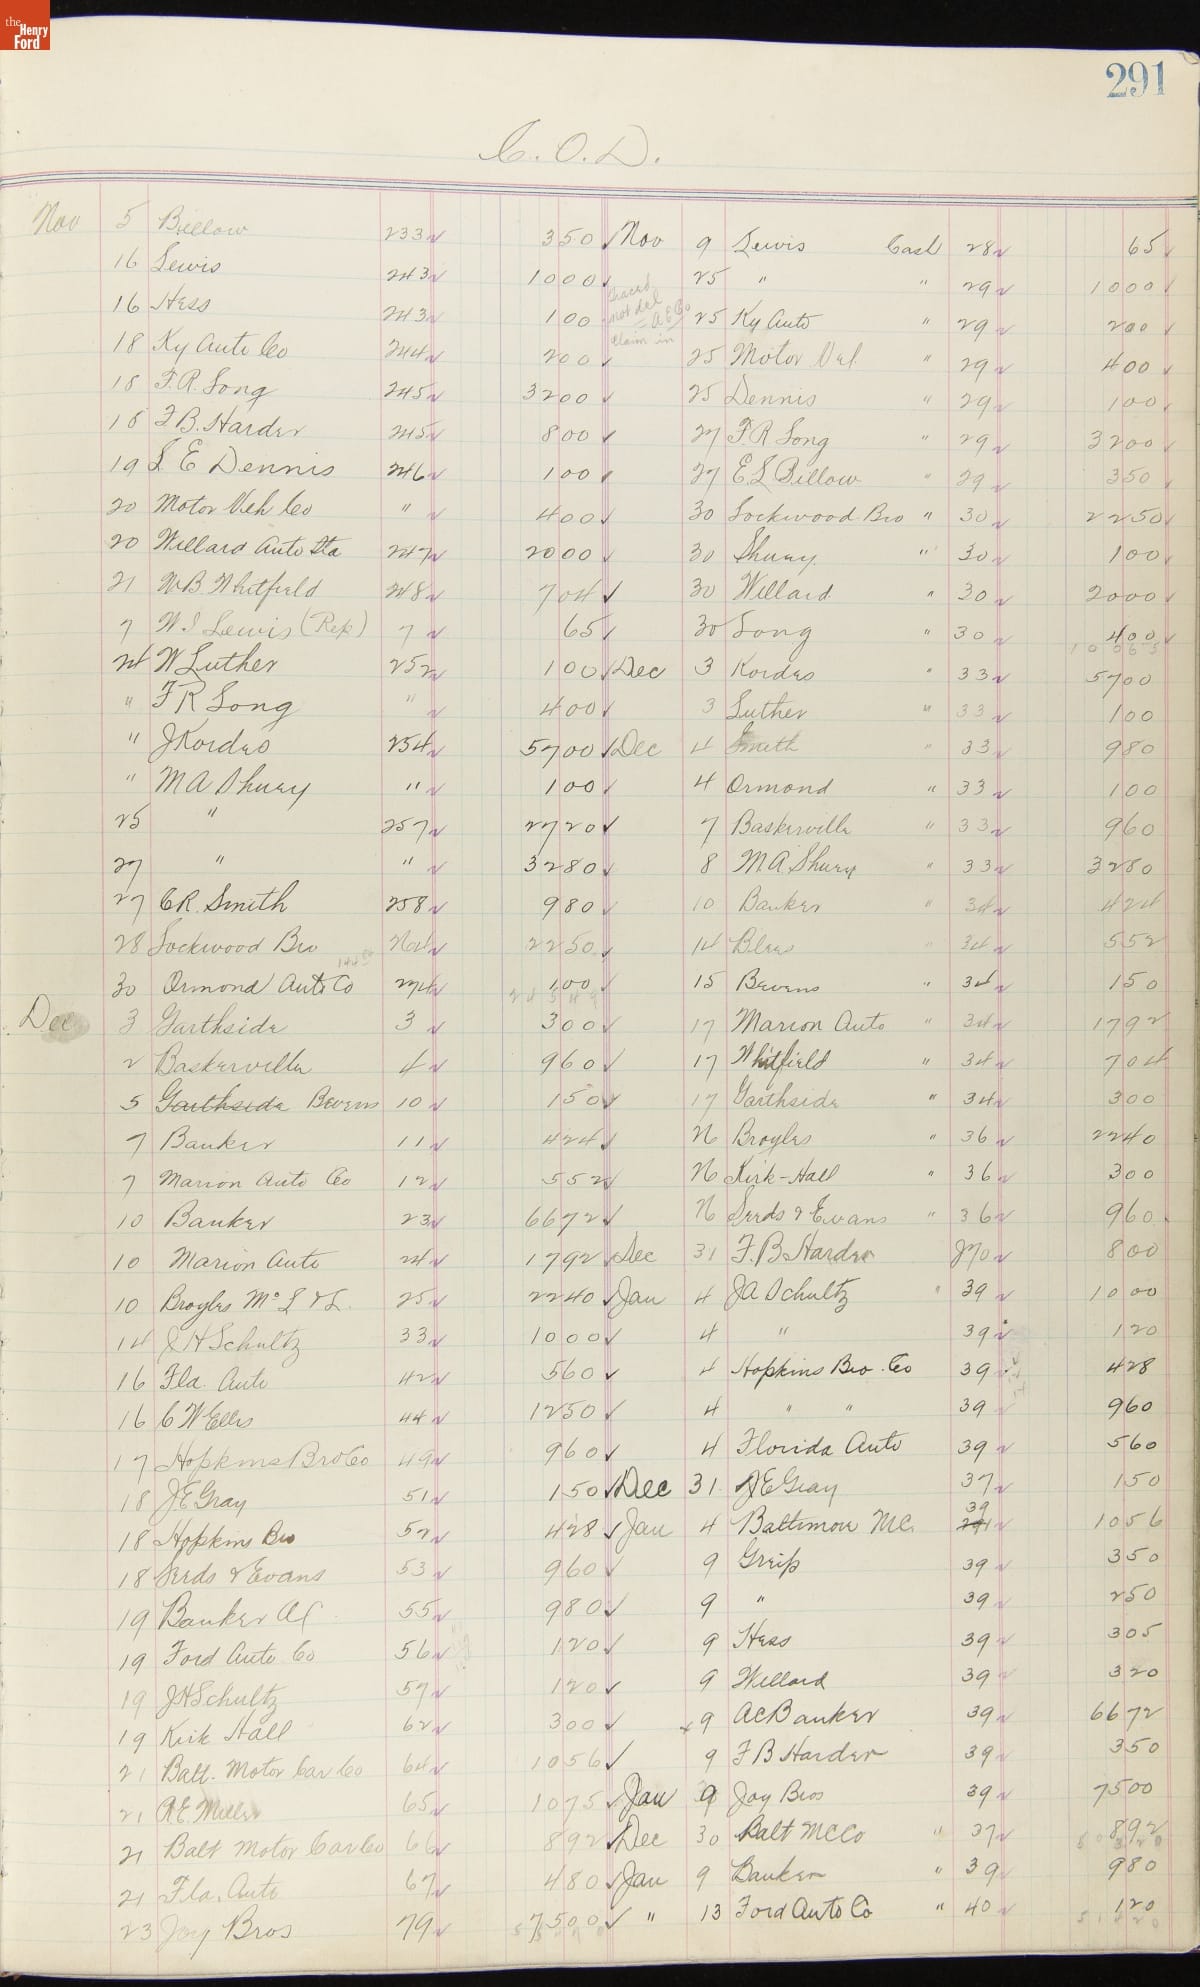 the Henry Ford
291
C.O.D.
Nov 5 Billow 233 350 ✓ Nov 9 Lewis Cash 28 65 ✓
16 Lewis 243 1000 ✓ 25 " " 29 1000 ✓
16 Hess 243 100 traced not del A E Co claim in 25 Ky Auto " 29 200 ✓
18 Ky Auto Co 244 200 ✓ 25 Motor Vel " 29 400 ✓
18 F.R. Long 245 3200 ✓ 25 Dennis " 29 100 ✓
18 F B. Harder 245 800 ✓ 27 F.R Long " 29 3200 ✓
19 L E Dennis 246 100 ✓ 27 E.L Billow " 29 350 ✓
20 Motor Veh Co " 400 ✓ 30 Lockwood Bro " 30 2250 ✓
20 Willard Auto Sta 247 2000 ✓ 30 Shuey " 30 100 ✓
21 W.B. Whitfield 248 704 ✓ 30 Willard " 30 2000 ✓
7 W.S Lewis (Rep) 7 65 ✓ 30 Long " 30 400 ✓
10065
24 W Luther 252 100 ✓ Dec 3 Kordes " 33 5700
" F R Long " 400 ✓ 3 Luther " 33 100
" J Kordes 254 5700 ✓ Dec 4 Smith " 33 980
" M A Shuey " 100 ✓ 4 Ormond " 33 100
25 " 257 2720 ✓ 7 Baskerville " 33 960
27 " " 3280 ✓ 8 M.A. Shuey " 33 3280
27 C.R. Smith 258 980 ✓ 10 Banker " 34 424
28 Lockwood Bro 264 2250 ✓ 14 Blees " 34 552
30 Ormond Auto Co 274 100 ✓ 15 Bevens " 34 150
Dec 3 Garthside 3 300 ✓ 17 Marion Auto " 34 1792
2 Baskerville 4 960 ✓ 17 Whitfield " 34 704
5 Garthside Bevens 10 150 ✓ 17 Garthside " 34 300
7 Banker 11 424 ✓ 26 Broyles " 36 2240
7 Marion Auto Co 12 552 ✓ 26 Kirk-Hall " 36 300
10 Banker 23 6672 ✓ 26 Seeds & Evans " 36 960
10 Marion Auto 24 1792 ✓ Dec 31 F.B. Harder J70 800
10 Broyles Mc L & L. 25 2240 ✓ Jan 4 J A Schultz " 39 1000
14 J H Schultz 33 1000 ✓ 4 " 39 120
16 Fla. Auto 42 560 ✓ 4 Hopkins Bro. Co 39 428
16 C W Ellis 44 1250 ✓ 4 " " 39 960
17 Hopkins Bro Co 49 960 ✓ 4 Florida Auto 39 560
18 J E Gray 51 150 ✓ Dec 31 J E Gray 37 150
18 Hopkins Bro 52 428 ✓ Jan 4 Baltimore M C. 39 1056
18 Seeds & Evans 53 960 ✓ 9 Greip 39 350
19 Banker A C 55 980 ✓ 9 " 39 250
19 Ford Auto Co 56 120 ✓ 9 Hess 39 305
19 J H Schultz 57 120 ✓ 9 Willard 39 320
19 Kirk Hall 62 300 ✓ 9 A C Banker 39 6672
21 Balt. Motor Car Co 64 1056 ✓ 9 F B Harder 39 350
21 R.E. Miller 65 1075 ✓ Jan 9 Joy Bros 39 7500
21 Balt Motor Car Co 66 892 ✓ Dec 30 Balt M C Co " 37 892
21 Fla. Auto 67 480 ✓ Jan 9 Banker " 39 980
23 Joy Bros 79 7500 ✓ " 13 Ford Auto Co " 40 120